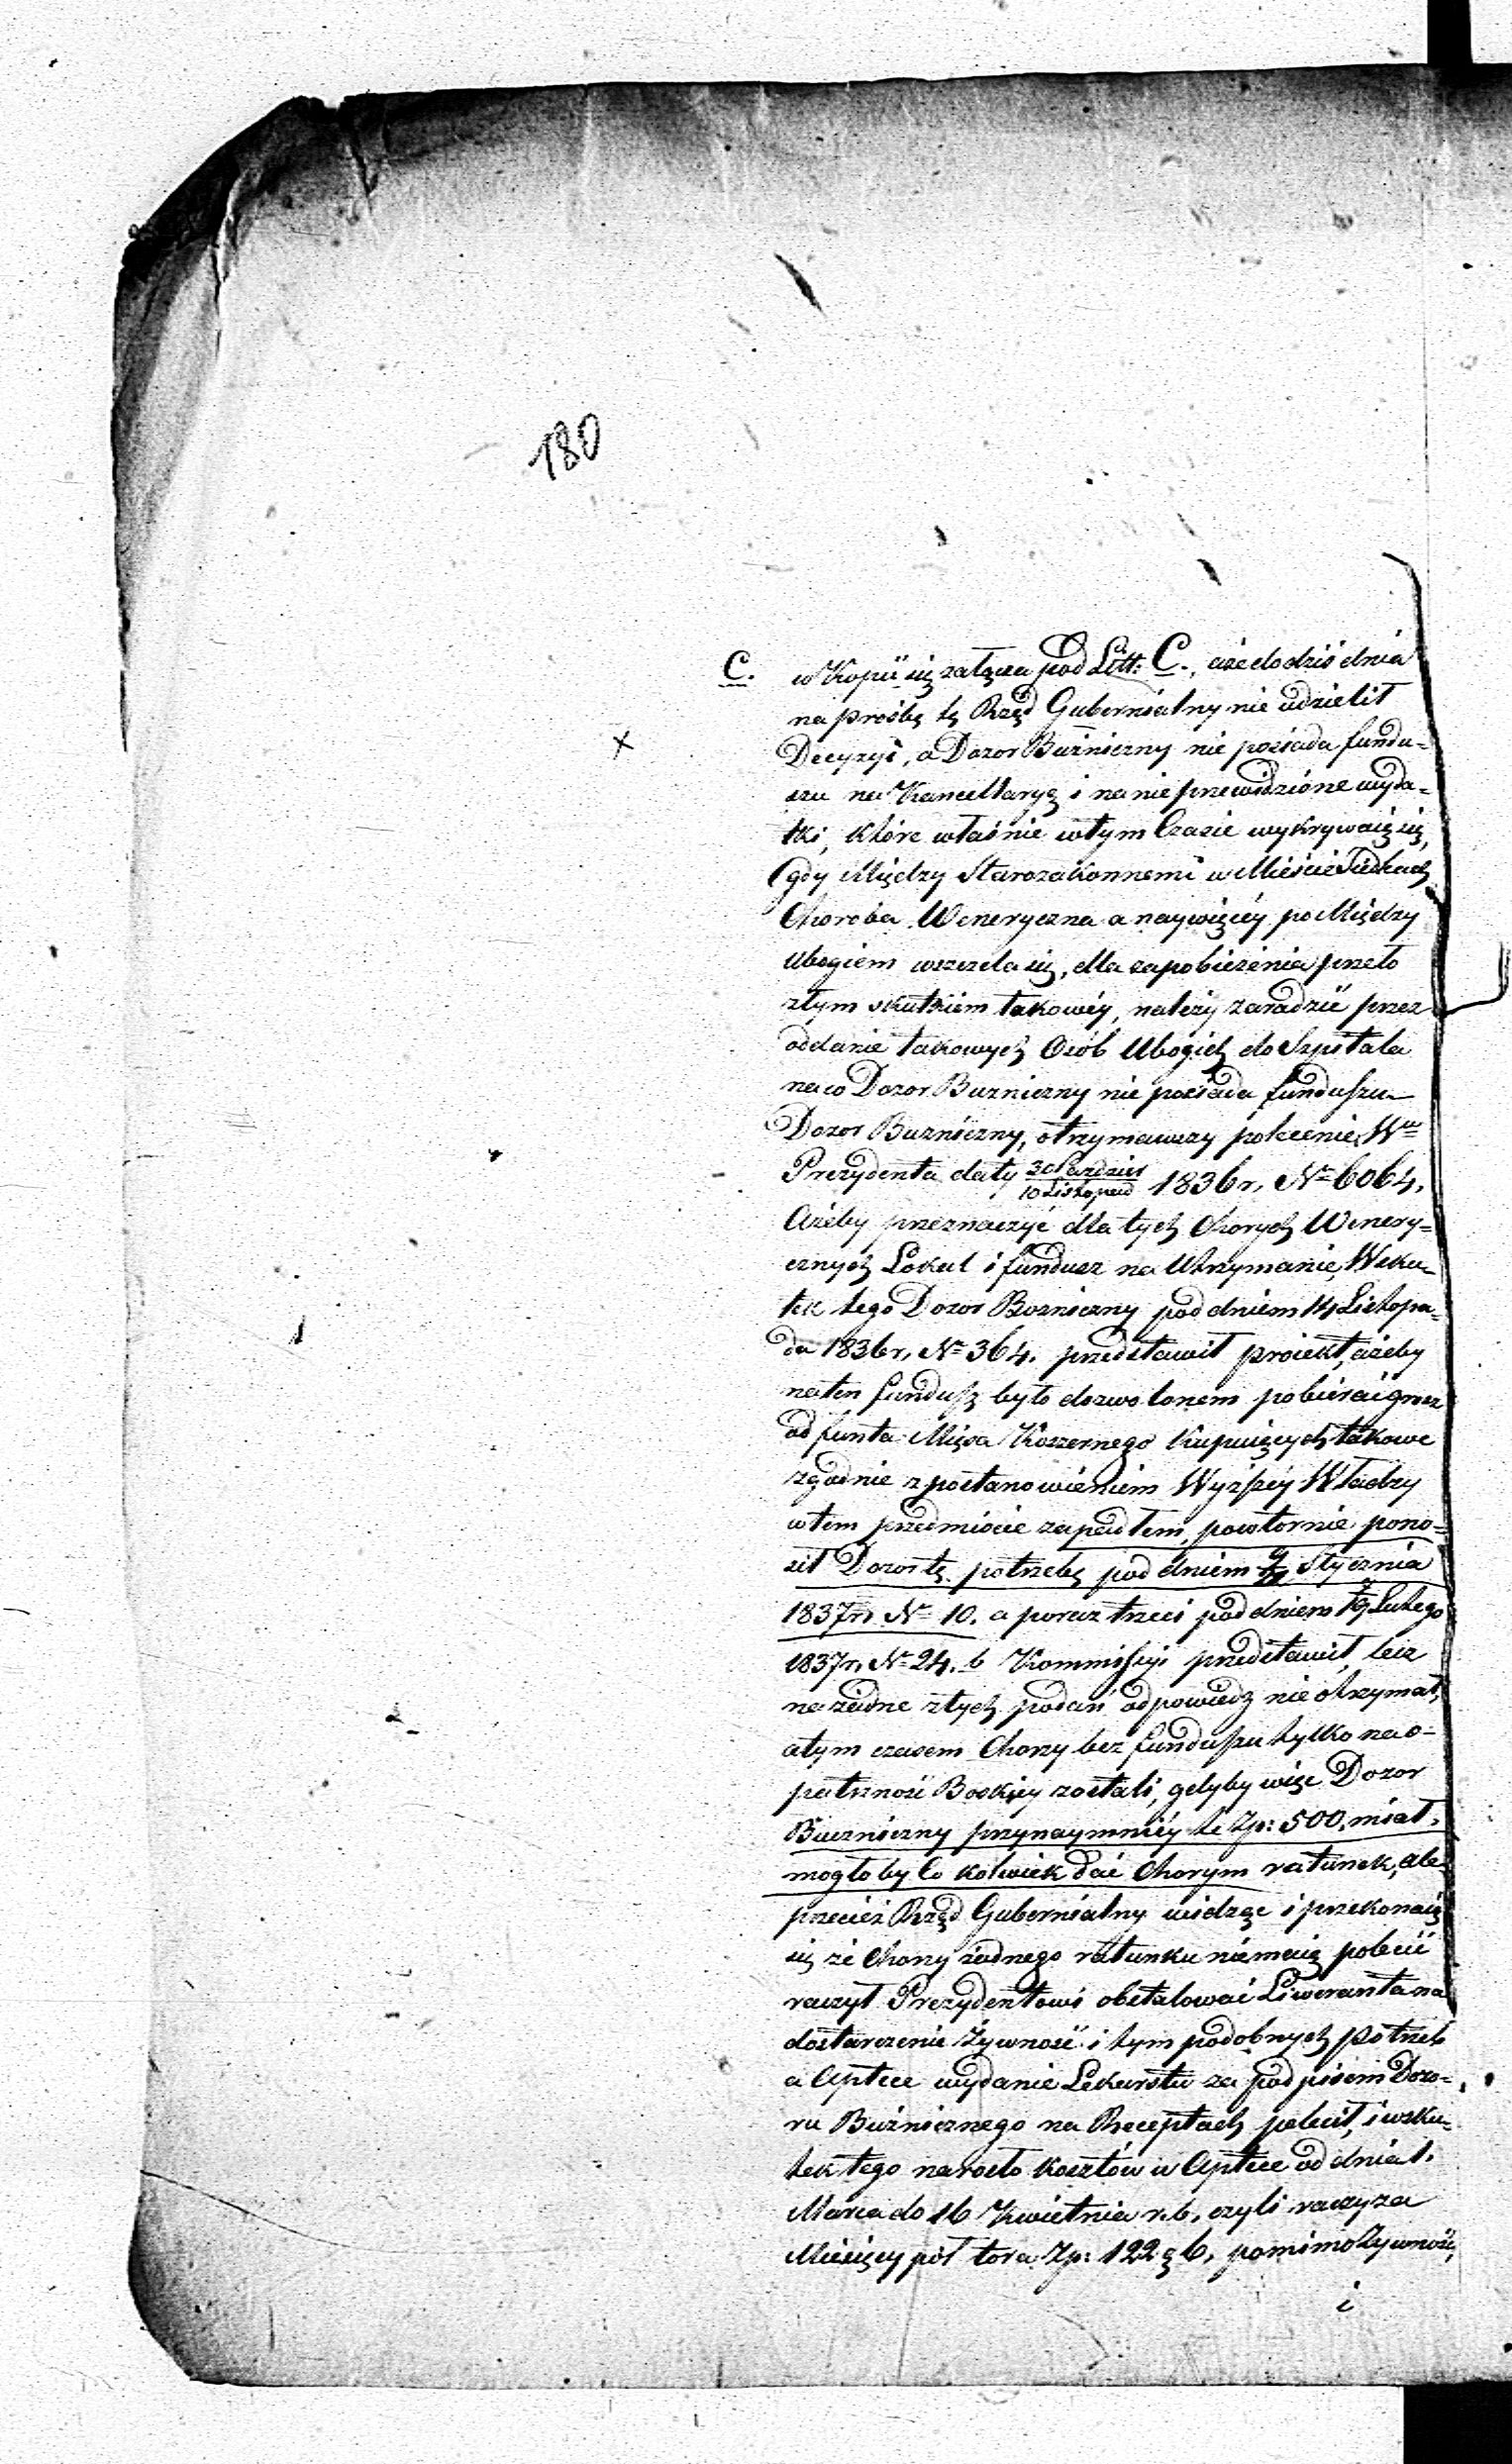 180
C. w Kopii się załącza pod Litt: C., aże do dziś dnia
na prośbę tę Rząd Gubernialny nie udzielił
Decyzyi, a Dozor Bużniczny nie posiada fundu=
szu na Kancellaryą i na nie przewidzióne wyda=
tki, które właśnie w tym Czasie wykrywaią się,
gdy Między Starozakonnemi w Mieście
Choroba Weneryczna a naywięcéy po Między
Ubogiem wszczela się, dla zapobieżenia przeto
złym skutkiem takowéy, należy zaradzić przez
oddanie takowych Osób Ubogich do Szpitala
na co Dozor Buzniczny nie posiada funduszu
Dozor Buzniczny, otrzymawszy polecenie Wu
Prezydenta daty 30 Pazdzier / 10 Listopad 1836 r, No 6064,
Ażeby przeznaczyć dla tych Chorych Wenery=
cznych Lokal i fundusz na Utrzymanie, Wsku-
tek tego Dozor Bozniczny pod dniem 14 Listopa=
da 1836 r, No 364. przedstawił proiekt, ażeby
na ten fundusz było dozwolonem pobierać grosz
od funta Mięsa Koszernego Kupuiących takowe
zgodnie z postanowieniem Wyższéy Władzy
w tem przedmiocie zapadłem, powtornie pono=
sił Dozor tę potrzebę pod dniem Stycznia
1837 r. No 10. a poraz trzeci pod dniem Lutego
1837 r, No 24. b Kommissyi przedstawił, lecz
na żadne z tych podań odpowiedz nie otrzymał,
a tym czasem Chorzy bez funduszu tylko na o-
patrzność Boskiey zostali, gdyby więc Dozor
Buzniczny przynaymniéy te Zp: 500, miał,
mogłoby Co kolwiek dać Chorym ratunek, ale
przecież Rząd Gubernialny widząc i przekonaią
się że Chorzy żadnego ratunku niemaią polecić
raczył Prezydentowi obstalować Liweranta na
dostarczenie Żywność i tym podobnych potrzeb
a Aptece wydanie Lekarstw za podpisem Dozo=
ru Bużnicznego na Receptach polecił, i wsku=
tek tego narosło kosztów w Aptece od dnia 1.
Marca do 16 Kwietnia r. b, czyli raczy za
Miesięcy pół tora Zp: 122 g 6, pomimo Żywność,
i